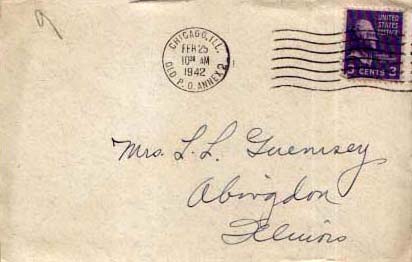 9
CHICAGO, ILL.
FEB 25
10 30 AM
1942
OLD P. O. ANNEX 2
UNITED
STATES
POSTAGE
3 CENTS 3
Mrs. L. L. Guernsey
Abingdon
Illinois